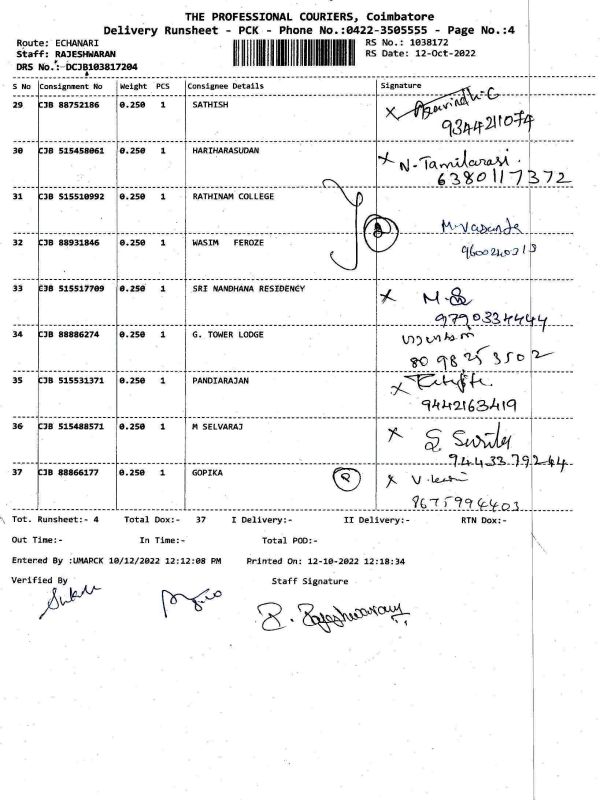 THE PROFESSIONAL COURIERS, Coimbatore
Delivery Runsheet - PCK - Phone No.:0422-3505555 - Page No.:4
Route: ECHANARI RS No.: 1038172
Staff: RAJESHWARAN RS Date: 12-Oct-2022
DRS No.: DCJB103817204
S No Consignment No Weight PCS Consignee Details Signature
29 CJB 88752186 0.250 1 SATHISH x Aravindh.C
9344211074
30 CJB 515458061 0.250 1 HARIHARASUDAN x N-Tamilarasi.
6380117372
31 CJB 515510992 0.250 1 RATHINAM COLLEGE
32 CJB 88931846 0.250 1 WASIM FEROZE
9600240313
33 CJB 515517709 0.250 1 SRI NANDHANA RESIDENCY x
9790334444
34 CJB 88886274 0.250 1 G. TOWER LODGE
80 98 25 3502
35 CJB 515531371 0.250 1 PANDIARAJAN x
9442163419
36 CJB 515488571 0.250 1 M SELVARAJ x
9443379244
37 CJB 88866177 0.250 1 GOPIKA x
8675994403
Tot. Runsheet:- 4 Total Dox:- 37 I Delivery:- II Delivery:- RTN Dox:-
Out Time:- In Time:- Total POD:-
Entered By :UMARCK 10/12/2022 12:12:08 PM Printed On: 12-10-2022 12:18:34
Verified By Staff Signature
R. Rajeshwaran